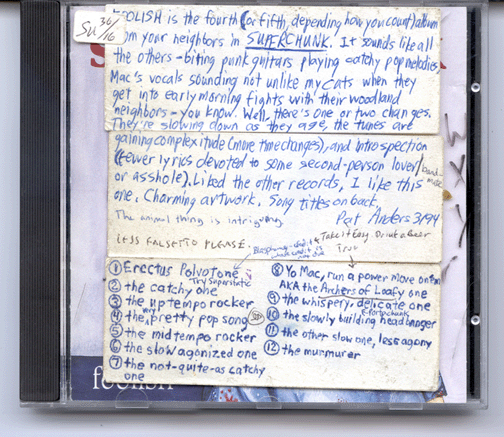 Su 36/16
FOOLISH is the fourth (or fifth, depending how you count) album
from your neighbors in SUPERCHUNK. It sounds like all
the others - biting punk guitars playing catchy pop melodies
Mac's vocals sounding not unlike my cats when they
get into early morning fights with their woodland
neighbors - you know. Well, there's one or two changes.
They're slowing down as they age, the tunes are
gaining complexitude (more time changes), and introspection
(fewer lyrics devoted to some second-person lover/
band-mate
or asshole). Liked the other records, I like this
one. Charming artwork. Song titles on back.
The animal thing is intriguing
Pat Anders 3/94
LESS FALSETTO PLEASE.
Take It Easy. Drink a Beer
① Erectus Polvotone
Try Superstatic
② the catchy one
③ the uptempo rocker
④ the very pretty pop song
⑤ the midtempo rocker
⑥ the slow agonized one
⑦ the not-quite-as catchy
one
⑧ Yo Mac, run a power move on 'em
AKA the Archers of Loafy one
⑨ the whispery, delicate one
⑩ the slowly building headbanger
⑪ the other slow one, less agony
⑫ the murmurer
foolish